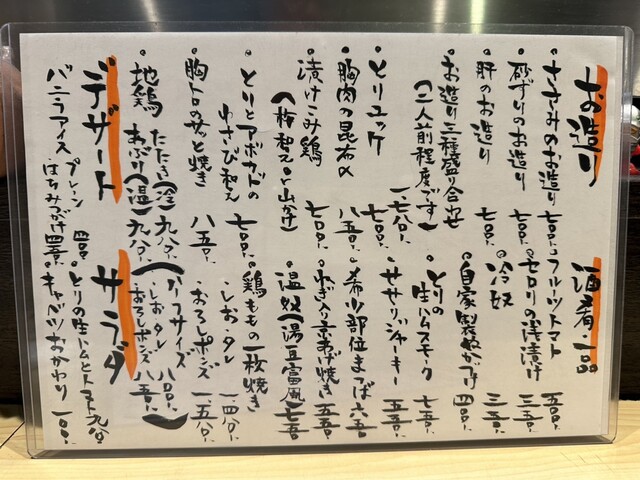 お造り
・ささみのお造り 七〇〇、
・砂ずりのお造り 七〇〇、
・肝のお造り 七〇〇、
・お造り三種盛り合わせ
(二人前程度です) 一七八〇、
・とりユッケ 七〇〇、
・胸肉の昆布〆 八五〇、
・漬けこみ鶏 七〇〇、
(梅和え or 山かけ)
・とりとアボカドの
わさび和え 七〇〇、
・胸トロのサッと焼き 八五〇、
・地鶏 たたき(冷) 九八〇、
あぶり(温) 九八〇、
デザート
バニラアイス プレーン 四〇〇、
はちみつがけ 四五〇、
酒肴一品
・フルーツトマト 五五〇、
・セロリの浅漬け 三五〇、
・冷奴 三五〇、
・自家製ぬか漬け 四〇〇、
・とりの
生ハムスモーク 七五〇、
・ささみジャーキー 五五〇、
・希少部位まつば 六五〇
・ねぎ入り京あげ焼き 五五〇
・温奴(湯豆富風) 七五〇
・鶏ももの一枚焼き
・しお タレ 一四八〇、
・おろしポンズ 一五八〇、
(ハーフサイズ
・しお タレ 八〇〇、
・おろしポンズ 八五〇、)
サラダ
・とりの生ハムとトマト 九八〇
・キャベツおかわり 一〇〇、